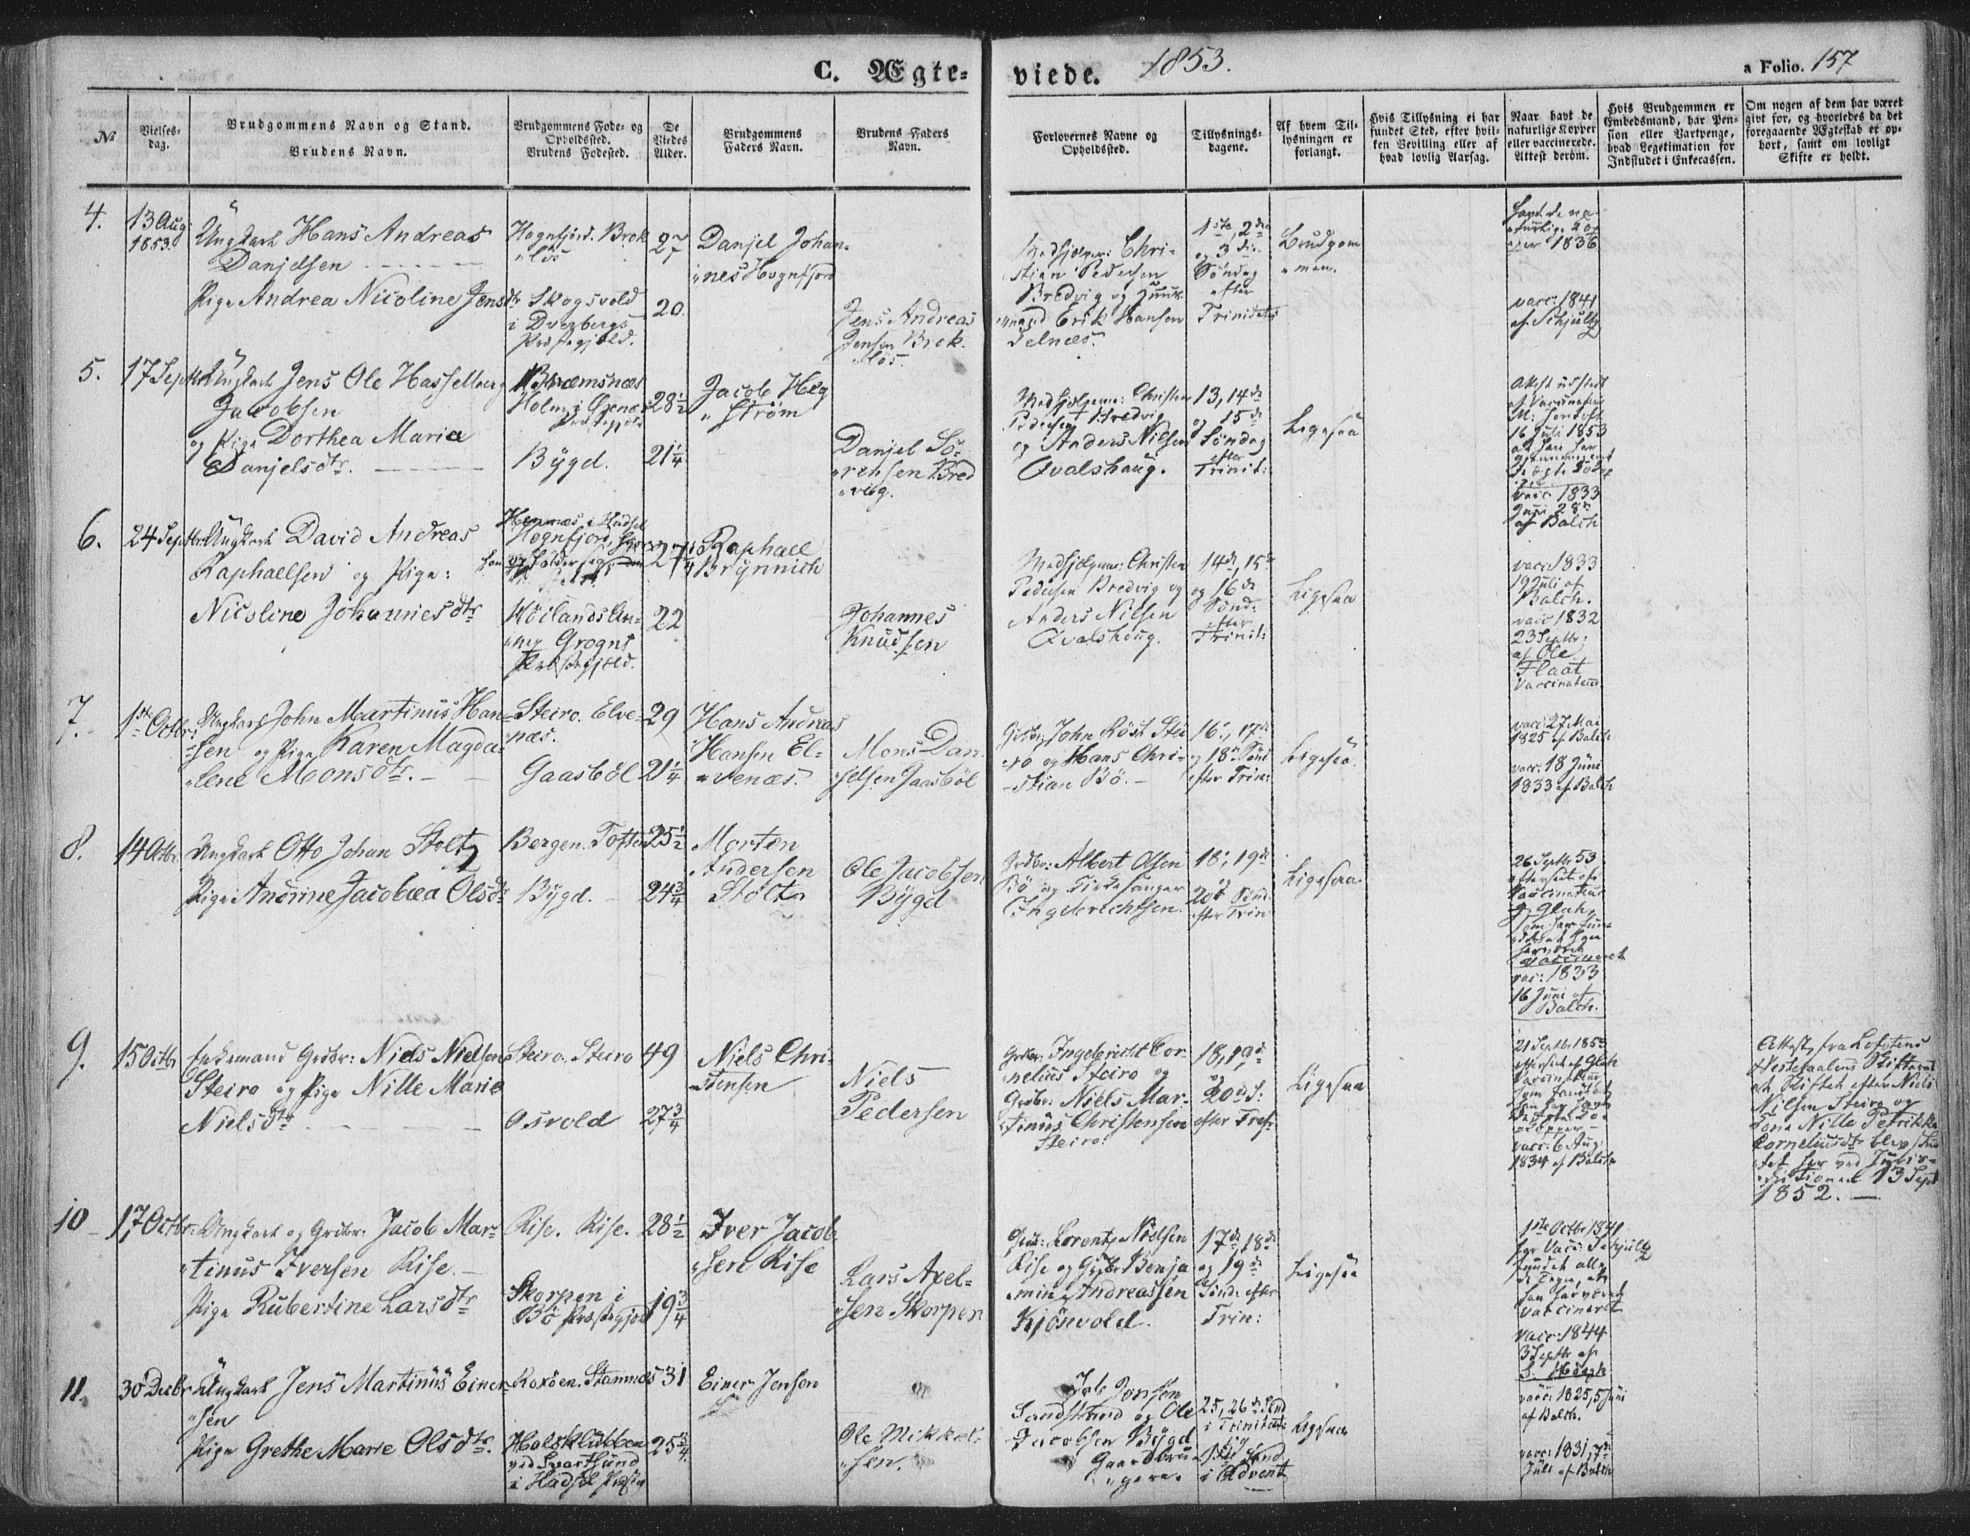 C. Ægte-
viede. 1853.
a Folio. 157
№
Vielses-
dag.
Brudgommens Navn og Stand.
Brudens Navn.
Brudgommens Føde- og
Opholdssted.
Brudens Fødested.
De
Viedes
Alder.
Brudgommens
Faders Navn.
Brudens Faders
Navn.
Forlovernes Navne og
Opholdssted.
Tillysnings-
dagene.
Af hvem Til-
lysningen er
forlangt.
Hvis Tillysning ei har
fundet Sted, efter hvil-
ken Bevilling eller af
hvad lovlig Aarsag.
Naar havt de
naturlige Kopper
eller vaccinerede.
Attest derom.
Hvis Brudgommen er
Embedsmand, har Pen-
sion eller Vartpenge,
hvad Legetimation for
Indskudet i Enkecassen.
Om nogen af dem har været
givt for, og hvorledes da det
foregaaende Ægteskab er op-
hørt, samt om lovligt
Skifte er holdt.
4.
13 Aug
1853
Ungkarl Hans Andreas
Danjelsen
Pige Andrea Nicoline Jensdtr
Hognfjord. Brok
løs
Skogsvold
i Dverbergs
Præstegjeld.
27
20
Danjel Johan-
nes Hognfjord
Jens Andreas
Jensen Brok-
løs.
Medhjelper: Chri-
stian Pedersen
Bredvig og
Erik Hansen
Selnæs.
1ste, 2den
og 3die
Søndag
efter
Trinitatis
Brudgom
men.
havt de na-
turlige Kop
per 1836
vacc: 1841
af Schjultz
5.
17 Septbr
Ungkarl Jens Ole Hasselberg
Jacobsen
og Pige Dorthea Maria
Danjelsdtr.
Bræmsnæs
Holm i Øxnæs
Præstegjeld
Bygd.
28½
21¼
Jacob Heg
strøm
Danjel Sö-
rensen Bred
vig.
Medhjelperne: Christen
Pedersen Bredvig
og Anders Nilsen
Qvalshaug.
13, 14de
og 15de
Søndag
efter
Trinit:
Ligesaa
Attest udstedt
af Vaccinatør
16 Juli 1853
at han har
vacc: 1833
Juni 28de
af Balch
6.
24 Septbr
Ungkarl David Andreas
Raphaelsen og Pige:
Nicoline Johannesdtr
Hognfjord,
Grogns
Præstegjeld.
27¼
22
Raphael
Brynnich
Johannes
Knudsen
Medhjelperne: Christen
Pedersen Bredvig og
Anders Nilsen
Qvalshaug.
14de, 15de
og 16de
Sönd:
efter
Trinit:
Ligesaa
vacc: 1833
19 Juli af
Balch.
vacc 1832
23 Septbr:
af Ole
Flaat
Vaccinateur
7.
1ste Octbr:
Ungkarl John Martinus Han-
sen og Pige Karen Magda-
lene Monsdtr.
Steiro. Elve-
næs.
Gaasböl
29
21¼
Hans Andreas
Hansen El-
venæs.
Mons Dan-
jelsen Gaasböl
Grdbr: John Röst Stei
ro og Hans Chri-
stian Bö.
16de, 17de
og 18de Sönd
efter Trin:
Ligesaa.
vacc: 27 Mai
1825 af Balch
vacc: 18 Juni
1833 af Balch
8.
14 Octbr.
Ungkarl Otto Johan Stoltz
Pige Anönine Jacobæa Olsdtr
Bergen. Toften
Bygd.
25½
24¾
Morten
Andersen
Stolt
Ole Jacobsen
Bygd
Grdbr: Albert Olsen
Bö og Kirkesanger
Ingebrechtsen.
18de, 19de
og
20de Sönd
efter Trin
Ligesaa
26 Septbr 53
Vaccinateur
Glah,
vaccineret
vacc: 1833
16 Juni af
Balch.
9.
15 Octbr
Enkemand Grdbr: Niels Nielsen
Steiro og Pige Nille Marie
Nielsdtr
Steiro. Steiro
Osvold
49
27¾
Niels Chri-
stensen
Niels
Pedersen
Grdbr: Ingebrecht Cor-
nelius Steiro og
Grdbr: Niels Mar-
tinus Christensen
Steiro.
18, 19de
og
20de S:
efter Tref:
Ligesaa
21 Septbr 1853
af Glah
Vaccinateur
som
Kopper
vacc: 6 Aug:
1834 af Balch
Attest fra Lofotens
og Vesteraalens Skifteret
at Skiftet efter Niels
Nilsen Steiro og
Kone Nille Petrikke
Corneliusdtr blev slut
tet her ved Juris-
dictionen 13 Sept
1852.
10
17 Octbr:
Ungkarl og Grdbr: Jacob Mar-
tinus Iversen Rise.
Pige Rubertine Larsdtr
Rise. Rise.
Skorpen i
Bö Præstegjeld
28½
19¾
Iver Jacob
sen Rise
Lars Axel-
sen Skorpen
Grdbr: Lorents Nielsen
Rise og Grdbr Benja
min Andreassen
Kjönvold.
17de, 18de
og 19de
Sönd: efter
Trin:
Ligesaa
1ste Octbr 1841
Vacc: Schjultz
fundet alle
de Tegn, at
han har været
vaccineret
vacc: 1844
3 Septbr af
S. Höegh
11.
30 Decbr
Ungkarl Jens Martinüs Einer
sen
Pige Grethe Marie Olsdtr.
Roxöen. Stamnes
Holsklubben
ved Svartsund
i Hadsel Præstegj
31
25¾
Einer Jensen
Ole Mikkel-
sen.
Jonsen
Sandstrand og Ole
Jacobsen Bygd
Gaardbru
gere.
25, 26de Sönd
i Trinitatis
og
1ste Sönd
i Advent
Ligesaa
vacc: 1825, 5 Juni
af Balch.
vacc: 1831, 7de
Juli af Balch